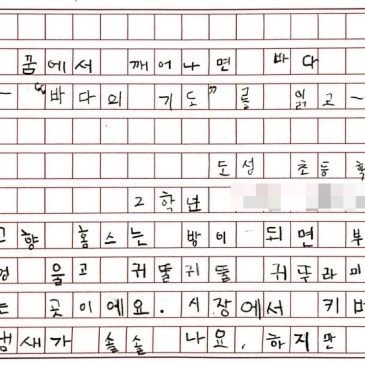 꿈에서 깨어나면 바다
-"바다의 기도"를 읽고-
도성 초등
2학년
고향 홈스는 방이 되면 부
울고 귀뚤귀둘 귀뚜라미
는 곳이에요. 시장에서 키
냄새가 솔솔 나요. 하지만